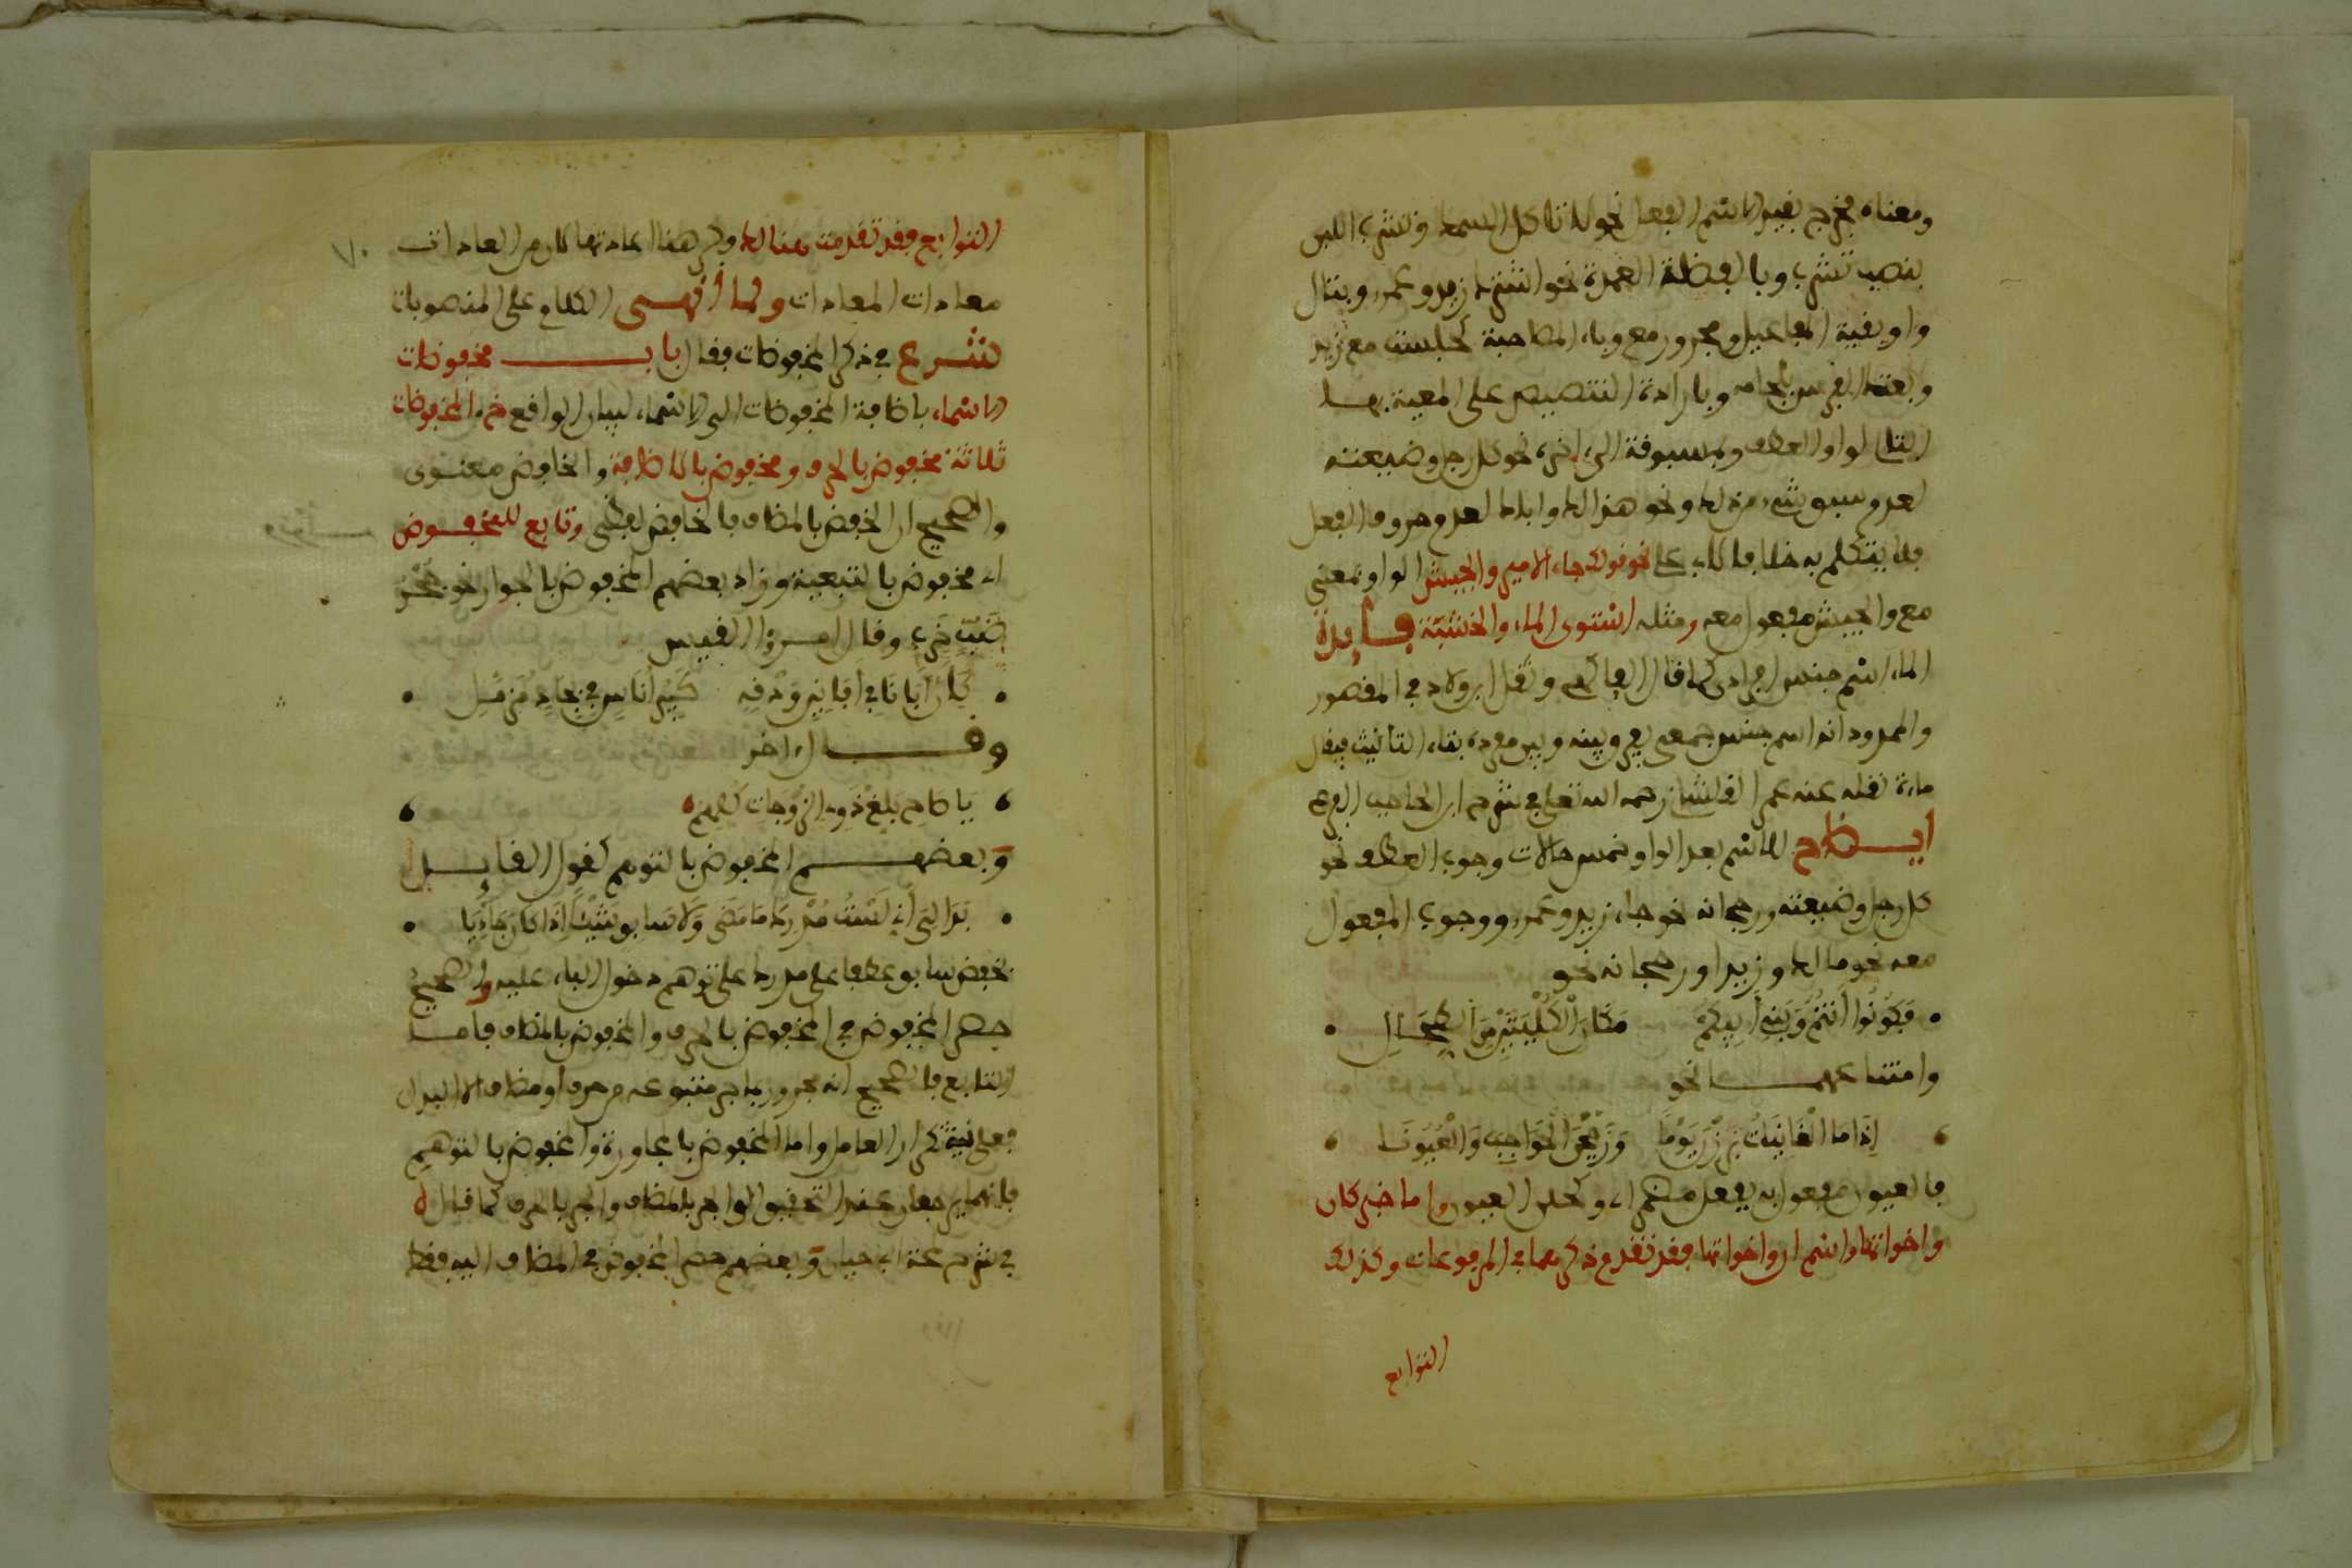 ومعناه فخرج بقيد الاسم الفعل نحو لا تاكل السمك وتشرب اللبن
بنصب تشرب وبالفضلة العمدة نحو اشترك زيد وعمرو وبتال
واو بقية المفاعيل ومجرور مع وباء المصاحبة كجلست مع زيد
وبعتك الفرس بلجامه وبارادة التنصيص على المعية بها
التال لواو العطف وبمسبوقة الى اخره نحو كل رجل وضيعته
لعدم سبق شيء من ذلك ونحو هذا لك واباك لعدم حروف الفعل
فلا يتكلم به خلافا لابي علي نحو قولك جاء الامير والجيش الواو بمعنى
مع والجيش مفعول معه ومثله استوى الماء والخشبة فايدة
الماء اسم جنس افرادي كما قال الفاكهي ونقل ابن ولاد في المقصور
والممدود انه اسم جنس جمعي يفرق بينه وبين مفرده بتاء التانيث فيقال
ماءة نقله عنه عمر القلشاني رحمه الله تعالى في شرح ابن الحاجب الفرعي
ايضاح للاسم بعد الواو خمس حالات وجوب العطف نحو
كل رجل وضيعته ورجحانه نحو جاء زيد وعمرو ووجوب المفعول
معه نحو ما لك وزيدا ورجحانه نحو
• فَكُونُوا أَنْتُمْ وَبَنِي أَبِيكُمْ مَكَانَ الْكُلْيَتَيْنِ مِنَ الطِّحَالِ •
وامتناعهما نحو
إِذَا مَا الْغَانِيَاتُ بَرَزْنَ يَوْمًا وَزَجَّجْنَ الْحَوَاجِبَ وَالْعُيُونَا
فالعيون مفعول به بفعل مضمر اي وكحلن العيون واما خبر كان
واخواتها واسم ان واخواتها فقد تقدم ذكرهما في المرفوعات وكذلك
التوابع
التوابع فقد تقدمت هنالك وفي هذا اعادتها كان من العادات
٧٠
معادات المعادات ولما أنهى الكلام على المنصوبات
شرع في ذكر المخفوضات فقال باب مخفوضات
الاسماء باضافة المخفوضات الى الاسماء لبيان الواقع المخفوضات
ثلاثة مخفوض بالحرف ومخفوض بالاضافة والخافض معنوى
والصحيح ان الخفض بالمضاف فالخافض لفظي وتابع للمخفوض
اي مخفوض بالتبعية وزاد بعضهم المخفوض بالجوار نحو جحر
ضب خرب وقال امرؤ القيس
• كَأَنَّ أَبَانًا فِي أَفَانِينِ وَدْقِهِ كَبِيرُ أُنَاسٍ فِي بِجَادٍ مُزَمَّلِ •
وقال اخر
يَا صَاحِ بَلِّغْ ذَوِي الزَّوْجَاتِ كُلِّهِمِ
وبعضهم المخفوض بالتوهم كقول القايل
• بَدَا لِيَ أَنِّي لَسْتُ مُدْرِكَ مَا مَضَى وَلَا سَابِقٍ شَيْئًا إِذَا كَانَ جَائِيَا •
بخفض سابق عطفا على مدرك على توهم دخول الباء عليه والصحيح
حصر المخفوض في المخفوض بالحرف والمخفوض بالمضاف فاما
التابع فالصحيح انه مجرور بما جر متبوعه من حرف او مضاف الا البدل
فعلى نية تكرار العامل واما المخفوض بالمجاورة والمخفوض بالتوهم
فانهما يرجعان عند التحقيق الى الجر بالمضاف والجر بالحرف كما قال
في شرح لمحة ابي حيان وبعضهم حصر المخفوض في المضاف اليه فقط